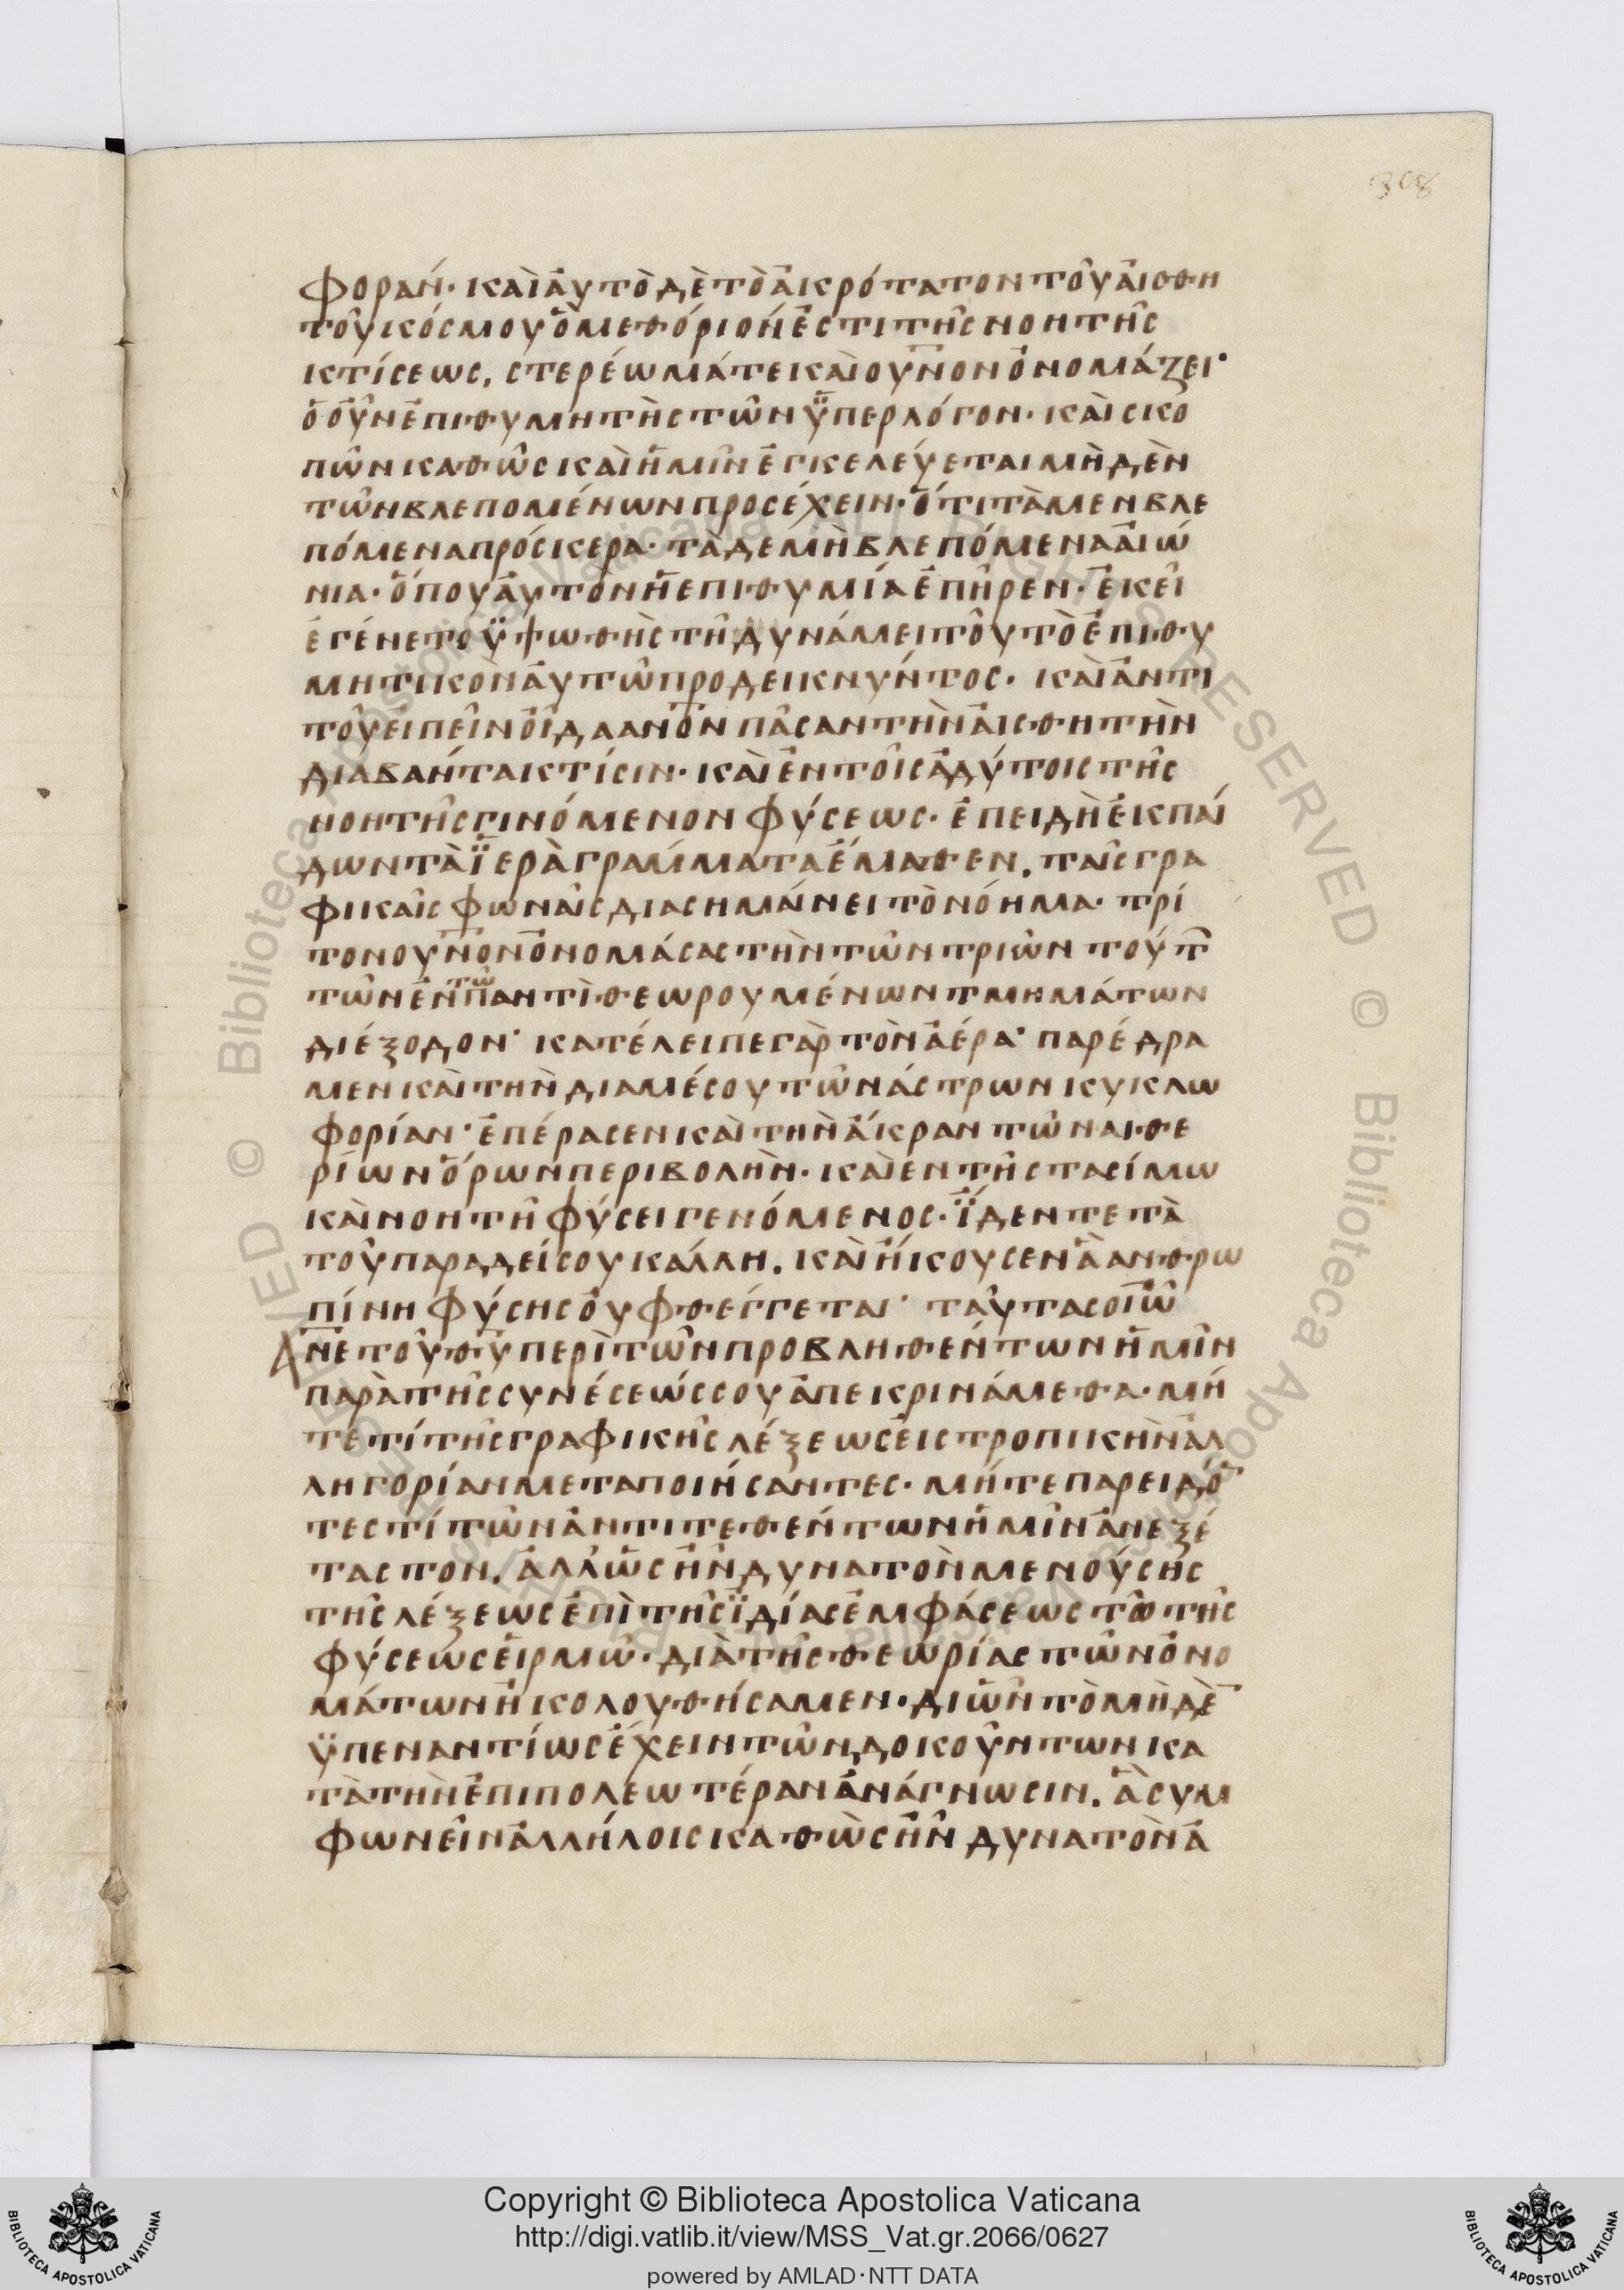 308
φοράν· καὶ ἀυτὸ δὲ τὸ ἀκρότατον τοῦ ἀισθη
τοῦ κόσμου ὃ μεθόριόν ἐστι τῆς νοητῆς
κτίσεως, στερέωμά τε καὶ οὐ̅ν̅ον ὀνομάζει·
ὁ οὖν ἐπιθυμητὴς τῶν ϋπὲρ λόγον· καὶ σκο
πῶν καθὼς καὶ ἡμῖν ἐγκελέυεται μὴδὲν
τῶν βλεπομένων προσέχειν· ὅτι τὰ μεν βλε
πόμενα πρόσκερα· τὰ δε μὴ βλεπόμενα ἀιώ
νια· ὅπου ἀυτὸν ἡ επιθυμία ἐπῆρεν· ἐκεῖ
ἐγένετο ϋψωθὴς τῆ δυνάμει τοῦ τὸ ἐπιθυ
μητικὸν ἀυτῶ προδεικνύντος· καὶ ἀντι
τοῦ ἐιπεῖν ὀῖδα αν̅ο̅ν̅ πᾶσαν τὴν ἀισθητὴν
διαβάντα κτίσιν· καὶ ἐν τοῖς ἀδύτοις τῆς
νοητῆς γινόμενον φύσεως· ἐπειδὴ ἐκ πάι
δων τὰ ϊερὰ γράμματα ἔμαθεν, ταῖς γρα
φικαῖς φωναῖς διασημάινει τὸ νόημα· τρί
τον ου̅ν̅ον̅ ὀνομάσας τὴν τῶν τριῶν τούτ̅
τῶν ἐν τῶ παντὶ θεωρουμένων τμημάτων
διέξοδον· κατέλειπε γὰρ τὸν ἀέρα· παρέδρα
μεν καὶ τὴν διαμέσου τῶν άστρων κυκλω
φορίαν· ἐπέρασεν καὶ τὴν ἄκραν τῶν αιθε
ρίων ὅρων περιβολὴν· καὶ εν τῆ στασίμω
καὶ νοητῆ φύσει γενόμενος· ϊδεν τε τὰ
τοῦ παραδείσου κάλλη. καὶ ἤκουσεν ἃ ανθρω
πίνη φύσης ὀυ φθέγγεται· ταῦτα σοι ῶ
ἄν̅ε̅ τοῦ θ̅υ̅ περὶ τῶν προβληθέντων ἡμῖν
παρὰ τῆς συνέσεώς σου ἀπεκρινάμεθα· μή
τέ τί τῆς γραφικῆς λέξεως ἐις τροπικὴν ἀλ
ληγορίαν μεταποιήσαντες· μήτε παρειδό̅
τες τί τῶν ἀντιτεθέντων ἡμῖν ἀνεξέ
ταστον. ἀλλ' ὡς ἦν δυνατὸν μενούσης
τῆς λέξεως ἐπὶ τῆς ϊδίας ἐμφάσεως τῶ τῆς
φύσεως ἑιρμῶ· διὰ τῆς θεωρίας τῶν ὀνο
μάτων ἠκολουθήσαμεν· δι ὧν τὸ μὴδὲ̅
ϋπεναντίως ἔχειν τῶν δοκούντων κα
τὰ τὴν ἐπιπολεωτέραν ἀνάγνωσιν. ἃ συμ
φωνεῖν ἀλλήλοις καθὼς ἦν δυνατὸν ἀ
© Biblioteca Apostolica Vaticana ALL RIGHTS RESERVED
Copyright © Biblioteca Apostolica Vaticana
http://digi.vatlib.it/view/MSS_Vat.gr.2066/0627
powered by AMLAD·NTT DATA
BIBLIOTECA APOSTOLICA VATICANA
BIBLIOTECA APOSTOLICA VATICANA